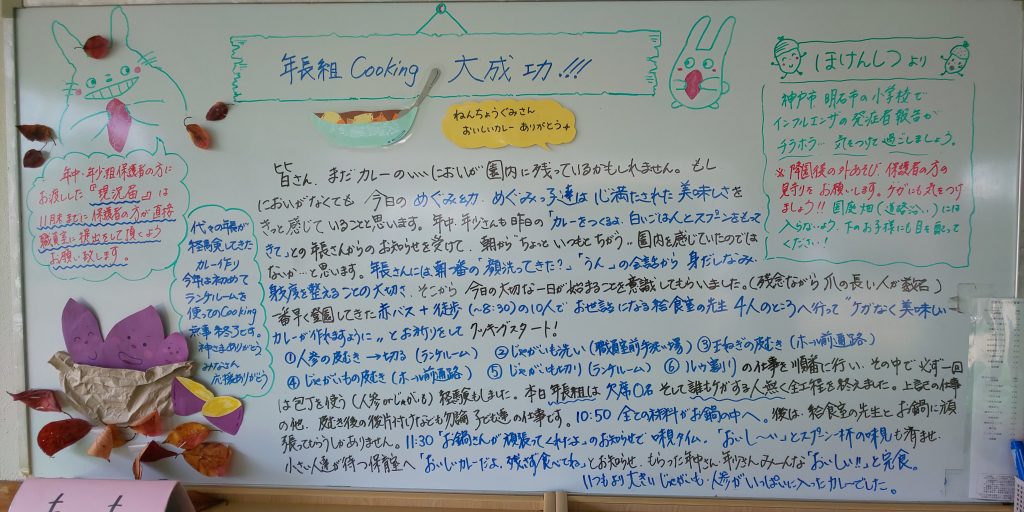 年長組 Cooking 大成功!!!
ねんちょうぐみさん
おいしいカレー ありがとう
ほけんしつより
神戸市 明石市の小学校で
インフルエンザの発症者報告が
チラホラ… 気をつけて過ごしましょう。
※降園後の外あそび、保護者の方の
見守りをお願いします。ケガにも気をつけ
ましょう!! 園庭畑(道路沿い)には
入らないよう、下のお子様にも目を配って
ください!
年中・年少組保護者の方に
お渡しした『現況届』は
11月末までに保護者の方が直接
職員室に提出をして頂くよう
お願い致します。
代々の年長が
経験してきた
カレー作り
今年は初めて
ランチルームを
使ってのCooking
無事終了です。
神さまありがとう
みなさん
応援ありがとう
皆さん、まだカレーのいいにおいが園内に残っているかもしれません。もし
においがなくても 今日のめぐみ&カ、めぐみっ子達は心満たされた美味しさを
きっと感じていることと思います。年中、年少さんも昨日の「カレーをつくるよ、白いごはんとスプーンをもって
きて」との年長さんからのお知らせを受けて、朝から"ちょっといつもとちがう"園内を感じていたのでは
ないか…と思います。年長さんには朝一番の「顔洗ってきた?」「うん」の会話から 身だしなみ、
身支度を整えることの大切さ、そこから 今日の大切な一日が始まることを意識してもらいました。(残念ながら爪の長い人が数名)
一番早く登園してきた赤バス+徒歩(~8:30)の10人でお世話になる給食室の先生 4人のところへ行って"ケガなく美味しい
カレーが作れますように"とお祈りをして クッキングスタート!
①人参の皮むき→切る(ランチルーム) ②じゃがいも洗い(職員室前手洗い場) ③玉ねぎの皮むき(ホール前通路)
④じゃがいもの皮むき(ホール前通路) ⑤じゃがいも切り(ランチルーム) ⑥ルウ割り)の仕事を順番に行い、その中で必ず一回
は包丁を使う(人参orじゃがいも)経験もしました。本日年長組は欠席0名 そして誰もケガする人無く全工程を終えました。上記の仕事
の他、皮むき後の後片付けなども勿論子ども達の仕事です。10:50 全ての材料がお鍋の中へ。後は、給食室の先生とお鍋に頑
張ってもらうしかありません。11:30「お鍋さんが頑張ってくれたよ」のお知らせで味見タイム。「おいし~い」とスプーン一杯の味見も済ませ
小さい人達が待つ保育室へ「おいしいカレーだよ。残さず食べてね」とお知らせ、もらった年中さん、年少さんみーんな「おいしい!!」と完食。
いつもより大きいじゃがいも・人参がいっぱいに入ったカレーでした。